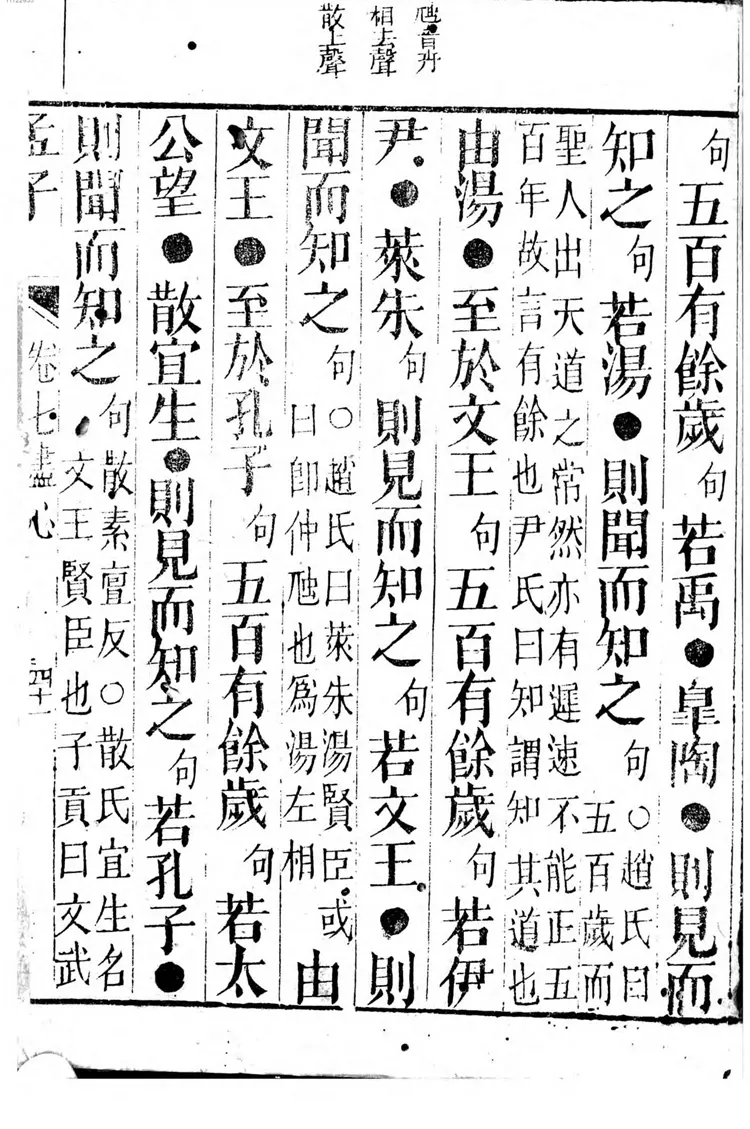 虺音卉
相去聲
散上聲
句五百有餘歲句若禹●臯陶●則見而
知之句若湯●則聞而知之句○趙氏曰五百歲而
聖人出天道之常然亦有遲速不能正五
百年故言有餘也尹氏曰知謂知其道也
由湯●至於文王句五百有餘歲句若伊
尹●萊朱句則見而知之句若文王●則
聞而知之句○趙氏曰萊朱湯賢臣或
曰卽仲虺也爲湯左相
由
文王●至於孔子句五百有餘歲句若太
公望●散宜生●則見而知之句若孔子●
則聞而知之句散素亶反○散氏宜生名
文王賢臣也子貢曰文武
孟子 卷七盡心 四十一